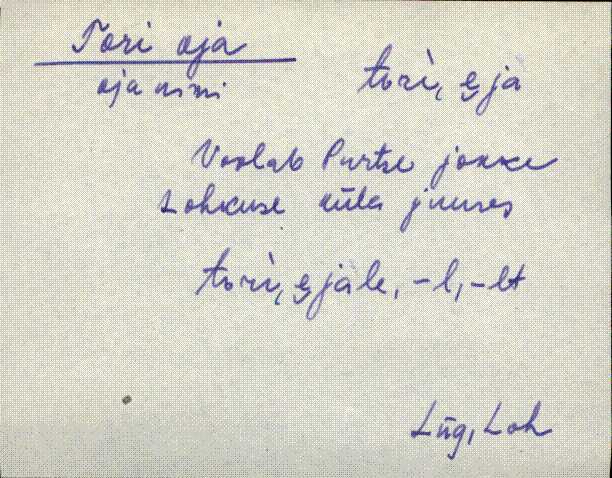 Tori oja
oja nimi
tori, e̮ja
Voolab Purtse jõkke
Lohkuse küla juures
tori, e̮jale, -l, -lt
Lüg, Loh